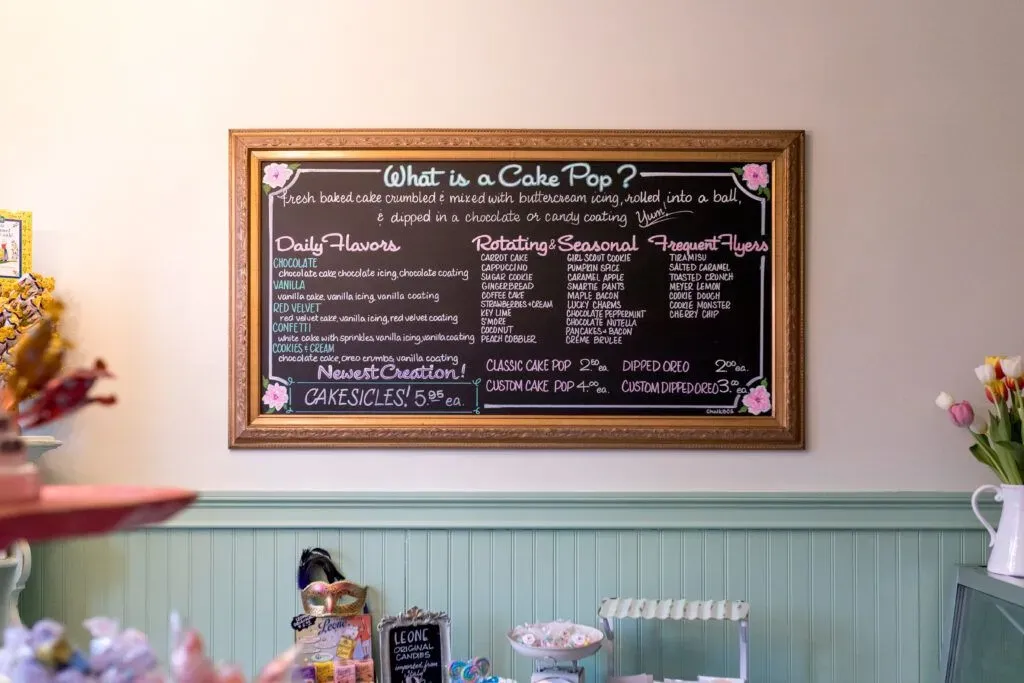 What is a Cake Pop?
Fresh baked cake crumbled & mixed with buttercream icing, rolled into a ball,
& dipped in a chocolate or candy coating Yum!
Daily Flavors
CHOCOLATE
chocolate cake, chocolate icing, chocolate coating
VANILLA
vanilla cake, vanilla icing, vanilla coating
RED VELVET
red velvet cake, vanilla icing, red velvet coating
CONFETTI
white cake with sprinkles, vanilla icing, vanilla coating
COOKIES & CREAM
chocolate cake, oreo crumbs, vanilla coating
Newest Creation!
CAKESICLES! 5.95 ea.
Rotating & Seasonal
CARROT CAKE
CAPPUCCINO
SUGAR COOKIE
GINGERBREAD
COFFEE CAKE
STRAWBERRIES & CREAM
KEY LIME
S'MORE
COCONUT
PEACH COBBLER
GIRL SCOUT COOKIE
PUMPKIN SPICE
CARAMEL APPLE
SMARTIE PANTS
MAPLE BACON
LUCKY CHARMS
CHOCOLATE PEPPERMINT
CHOCOLATE NUTELLA
PANCAKES & BACON
CRÈME BRULEE
Frequent Flyers
TIRAMISU
SALTED CARAMEL
TOASTED CRUNCH
MEYER LEMON
COOKIE DOUGH
COOKIE MONSTER
CHERRY CHIP
CLASSIC CAKE POP 2.50 ea.
DIPPED OREO 2.00 ea.
CUSTOM CAKE POP 4.00 ea.
CUSTOM DIPPED OREO 3.00 ea.
Leone
LEONE
ORIGINAL
CANDIES
imported from
Italy